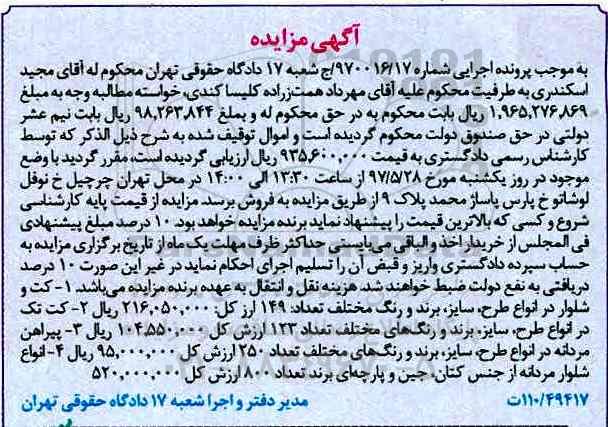 آگهی مزایده
به موجب پرونده اجرایی شماره ۹۷۰۰۱۶/۱۷/ج شعبه ۱۷ دادگاه حقوقی تهران محکوم له آقای مجید
اسکندری به طرفیت محکوم علیه آقای مهرداد همت‌زراده کلیسا کندی، خواسته مطالبه وجه به مبلغ
۱,۹۶۵,۲۷۶,۸۶۹ ریال بابت محکوم به در حق محکوم له و بمبلغ ۹۸,۲۶۳,۸۴۴ ریال بابت نیم عشر
دولتی در حق صندوق دولت محکوم گردیده است و اموال توقیف شده به شرح ذیل الذکر که توسط
کارشناس رسمی دادگستری به قیمت ۹۳۵,۶۰۰,۰۰۰ ریال ارزیابی گردیده است، مقرر گردید با وضع
موجود در روز یکشنبه مورخ ۹۷/۵/۲۸ از ساعت ۱۳:۳۰ الی ۱۴:۰۰ در محل تهران چرچیل خ نوفل
لوشاتو خ پارس پاساژ محمد پلاک ۹ از طریق مزایده به فروش برسد. مزایده از قیمت پایه کارشناسی
شروع و کسی که بالاترین قیمت را پیشنهاد نماید برنده مزایده خواهد بود. ۱۰ درصد مبلغ پیشنهادی
فی المجلس از خریدار اخذ و الباقی می‌بایستی حداکثر ظرف مهلت یک ماه از تاریخ برگزاری مزایده به
حساب سپرده دادگستری واریز و قبض آن را تسلیم اجرای احکام نماید در غیر این صورت ۱۰ درصد
دریافتی به نفع دولت ضبط خواهند شد. هزینه نقل و انتقال به عهده برنده مزایده می‌باشد. ۱- کت و
شلوار در انواع طرح، سایز، برند و رنگ مختلف تعداد: ۱۴۹ ارز کل: ۲۱۶,۰۵۰,۰۰۰ ریال ۲- کت تک
در انواع طرح، سایز، برند و رنگ‌های مختلف تعداد ۱۲۳ ارزش کل ۱۰۴,۵۵۰,۰۰۰ ریال ۳- پیراهن
مردانه در انواع طرح، سایز، برند و رنگ‌های مختلف تعداد ۲۵۰ ارزش کل ۹۵,۰۰۰,۰۰۰ ریال ۴- انواع
شلوار مردانه از جنس کتان، جین و پارچه‌ای برند تعداد ۸۰۰ ارزش کل ۵۲۰,۰۰۰,۰۰۰
۱۱۰/۴۹۴۱۷ت مدیر دفتر و اجرا شعبه ۱۷ دادگاه حقوقی تهران